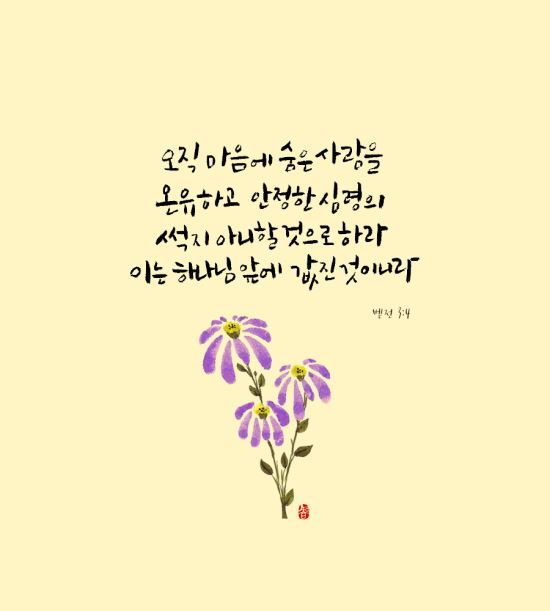 오직 마음에 숨은 사람을
온유하고 안정한 심령의
썩지 아니할 것으로 하라
이는 하나님 앞에 값진 것이니라
벧전 3:4